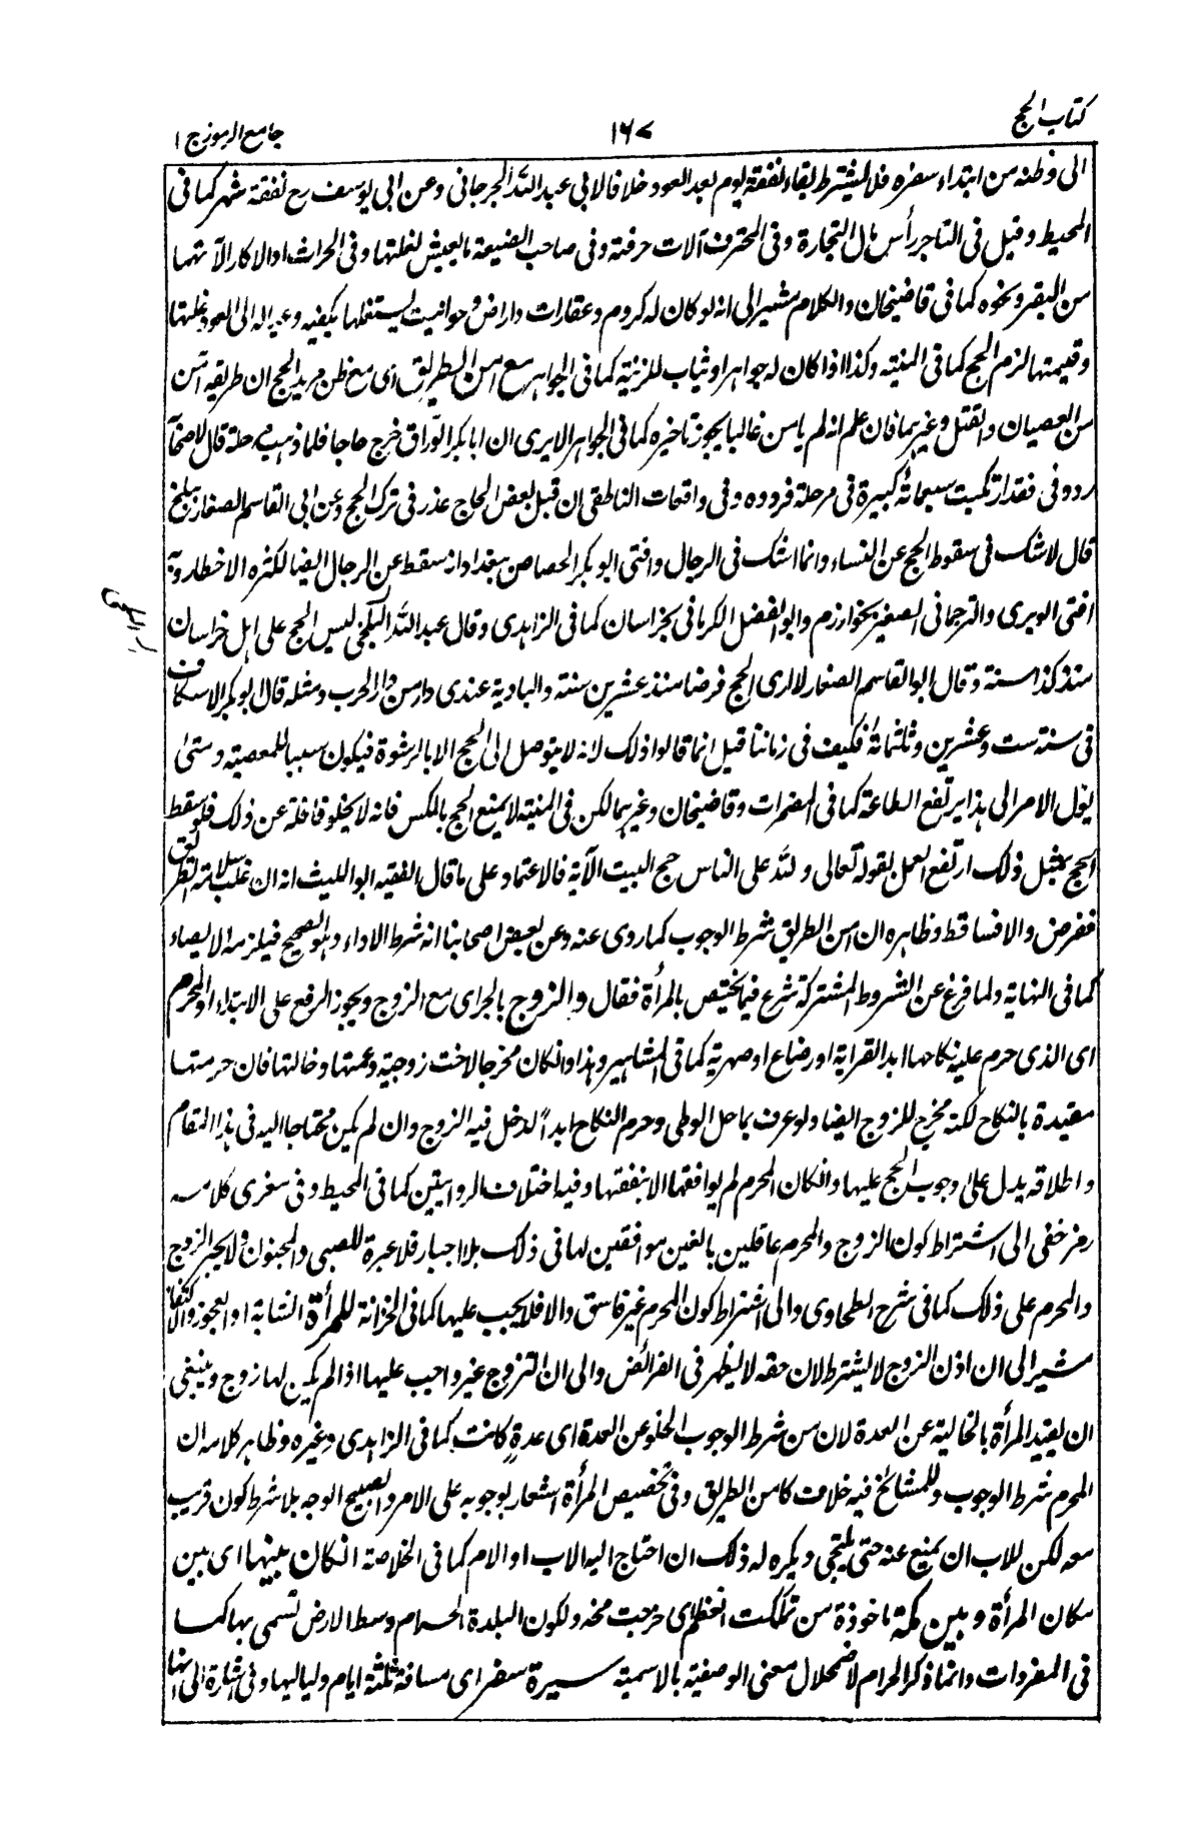 كتاب الحج
١٦٧
جامع الرموز ج ١
الى وطنه من ابتداء سفره فلا يشترط بقاء نفقة يوم بعد العود خلافا لابى عبد الله الجرجانى وعن ابى يوسف رح نفقة شهر كما فى
المحيط وقيل فى التاجر رأس مال التجارة وفى المحترف آلات حرفته وفى صاحب الضيعة ما يعيش لغلتها وفى الحراث او الاكار الآتهما
من البقر ونحوه كما فى قاضيخان والكلام مشير الى انه لو كان له كروم وعقارات واراض وحوانيت يستغلها يكفيه وعياله الى العود غلتها
وقيمتها لزم الحج كما فى المنية وكذا اذا كان له جواهر او ثياب للزينة كما فى الجواهر مع امن الطريق اى مع ظن مريد الحج ان طريقه آمن
من العصيان والقتل وغيرهما فان علم انه لم يامن غالبا يجوز تاخيره كما فى الجواهر الايرى ان ابا بكر الوراق خرج حاجا فلما ذهب مرحلة قال لاصحابه
ردونى فقد ارتكبت سبعمائة كبيرة فى مرحلة فردوه وفى واقعات الناطفى ان قتل بعض الحاج عذر فى ترك الحج وعن ابى القاسم الصفار ببلخ
قال لا شك فى سقوط الحج عن النساء وانما اشك فى الرجال وافتى ابو بكر الجصاص ببغداد انه سقط عن الرجال ايضا لكثرة الاخطار وبه
افتى الوبرى والترجمانى الصغير بخوارزم وابو الفضل الكرمانى بخراسان كما فى الزاهدى وقال عبد الله البلخى ليس الحج على اهل خراسان
منذ كذا سنة وقال ابو القاسم الصفار لا ارى الحج فرضا منذ عشرين سنة والبادية عندى دار من دار الحرب ومثله قال ابو بكر الاسكاف
فى سنة ست وعشرين وثلثمائة فكيف فى زماننا قيل انما قالوا ذلك لانه لا يتوصل الى الحج الا بالرشوة فيكون سببا للمعصية ومتى
يؤل الامر الى هذا يرتفع الطاعة كما فى المضمرات وقاضيخان وغيرهما لكن فى المنية لا يمنع الحج بالمكس فانه لا يخلو قافلة عن ذلك فلو سقط
الحج بمثل ذلك ارتفع العمل بقوله تعالى ولله على الناس حج البيت الآية فالاعتماد على ما قال الفقيه ابو الليث انه ان غلب سلامة الطريق
ففرض والا فساقط وظاهره ان امن الطريق شرط الوجوب كما روى عنه وعن بعض اصحابنا انه شرط الاداء وهو الصحيح فيلزمه الايصاء
كما فى النهاية ولما فرغ عن الشروط المشتركة شرع فيما يختص بالمرأة فقال والزوج بالجر اى مع الزوج ويجوز الرفع على الابتداء او المحرم
اى الذى حرم عليه نكاحها ابدا لقرابة او رضاع او صهرية كما فى المشاهير وهذا وانكان مخرجا لاخت زوجته وعمتها وخالتها فان حرمتها
مقيدة بالنكاح لكنه مخرج للزوج ايضا ولو عرف بما حل الوطى وحرم النكاح ابداً لدخل فيه الزوج وان لم يكن محتاجا اليه فى هذا المقام
واطلاقه يدل على وجوب الحج عليها وانكان المحرم لم يوافقها الا بنفقتها وفيه اختلاف الروايتين كما فى المحيط وفى سفرى كلامه
رمز خفى الى اشتراط كون الزوج والمحرم عاقلين بالغين موافقين لها فى ذلك بلا اجبار فلا عبرة للصبى والمجنون ولا يجبر الزوج
والمحرم على ذلك كما فى شرح الطحاوى والى اشتراط كون المحرم غير فاسق والا فلا يجب عليها كما فى الخزانة للمرأة الشابة او العجوز والاكتفاء
مشير الى ان اذن الزوج لا يشترط لان حقه لا يظهر فى الفرائض والى ان التزوج غير واجب عليها اذا لم يكن لها زوج وينبغى
ان يقيد المرأة بالخالية عن العدة لان من شرط الوجوب الخلو عن العدة اى عدةٍ كانت كما فى الزاهدى وغيره وظاهر كلامه ان
المحرم شرط الوجوب وللمشائخ فيه خلاف كامن الطريق وفى تخصيص المرأة اشعار بوجوبه على الامرد الصبيح الوجه بلا شرط كون قريب
معه لكن للاب ان يمنع عنه حتى يلتحى ويكره له ذلك ان احتاج اليه الاب او الام كما فى الخلاصة انكان بينها اى بين
مكان المرأة وبين مكة ماخوذة من تمككت العظم اى خرجت مخه ولكون البلدة الحرام وسط الارض تسمى بها كما
فى المفردات وانما ذكر الحرام لاضمحلال معنى الوصفية بالاسمية مسيرة سفر اى مسافة ثلثة ايام ولياليها وفى اشارة الى انها